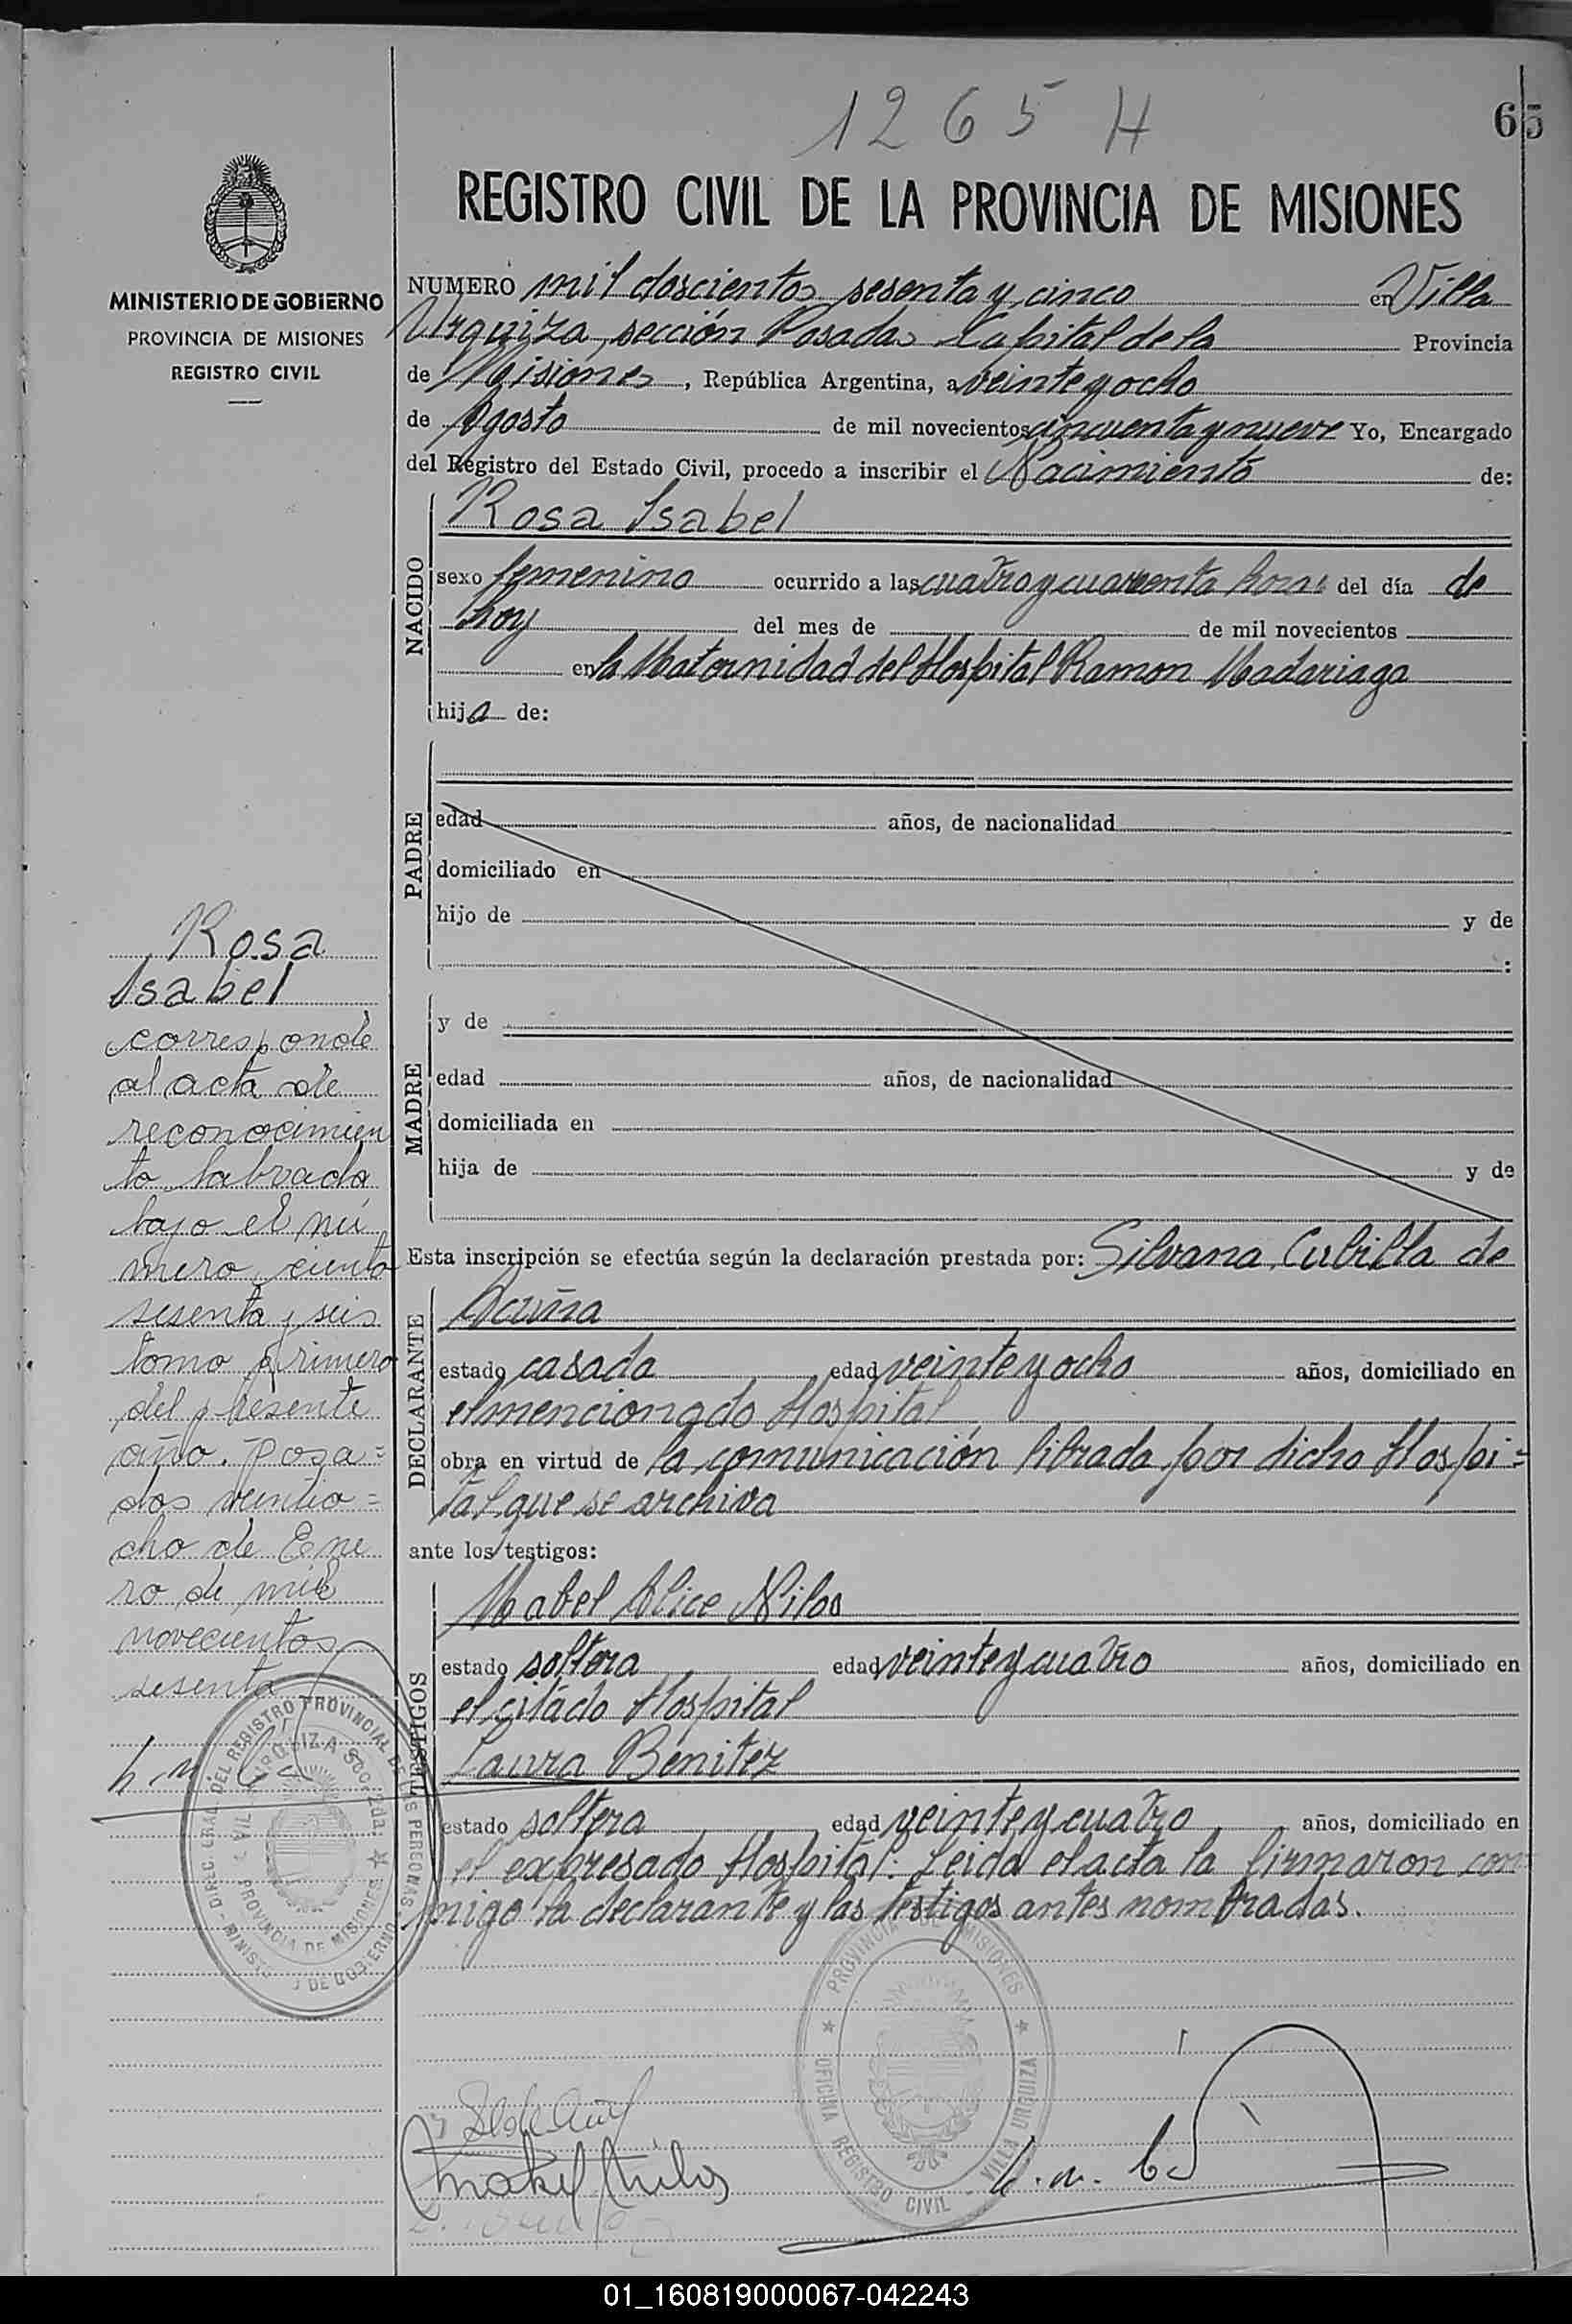 1265 H
65
REGISTRO CIVIL DE LA PROVINCIA DE MISIONES
MINISTERIO DE GOBIERNO
PROVINCIA DE MISIONES
REGISTRO CIVIL
NUMERO mil doscientos sesenta y cinco en Villa
Urquiza, sección Posadas Capital de la Provincia
de Misiones, República Argentina, a veinte y ocho
de Agosto de mil novecientos cincuenta y nueve Yo, Encargado
del Registro del Estado Civil, procedo a inscribir el Nacimiento de:
NACIDO
Rosa Isabel
sexo femenino ocurrido a las cuatro y cuarenta horas del día de
hoy del mes de de mil novecientos
en la Maternidad del Hospital Ramon Madariaga
hija de:
PADRE
edad años, de nacionalidad
domiciliado en
hijo de y de
:
MADRE
y de
edad años, de nacionalidad
domiciliada en
hija de y de
Esta inscripción se efectúa según la declaración prestada por: Silvana Cubilla de
DECLARANTE
Acuña
estado casada edad veinte y ocho años, domiciliado en
el mencionado Hospital
obra en virtud de la comunicación librada por dicho Hospi=
tal que se archiva
ante los testigos:
TESTIGOS
Mabel Alice Nilos
estado soltera edad veinte y cuatro años, domiciliado en
el citado Hospital
Laura Benitez
estado soltera edad veinte y cuatro años, domiciliado en
el expresado Hospital. Leida el acta la firmaron con
migo la declarante y las testigos antes nombradas.
Rosa
Isabel
corresponde
al acta de
reconocimien
to labrada
bajo el nú
mero ciento
sesenta y seis
tomo primero
del presente
año. Posa=
das veintio=
cho de Ene
ro de mil
novecientos
sesenta
DIREC. GRAL. DEL REGISTRO PROVINCIAL DE LAS PERSONAS
MINISTERIO DE GOBIERNO
PROVINCIA DE MISIONES
PROVINCIA MISIONES
OFICINA REGISTRO CIVIL VILLA URQUIZA
Mabel Nilos
01_160819000067-042243